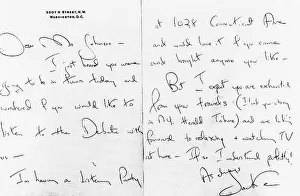 3307 N STREET, N.W.
WASHINGTON, D.C.
Dear Mr. Johnson —
I just heard you were
going to be in town today and
wondered if you would like to
listen to the Debate with
us —
I'm having a Listening Party
at 1028 Connecticut Ave
and would love it if you came
and brought anyone you like —
But I expect you are exhausted
from your travels (I let you stay
in N.Y. Herald Tribune) and are looking
forward to relaxing + watching TV
at home — If so I understand perfectly!
As always
Jackie